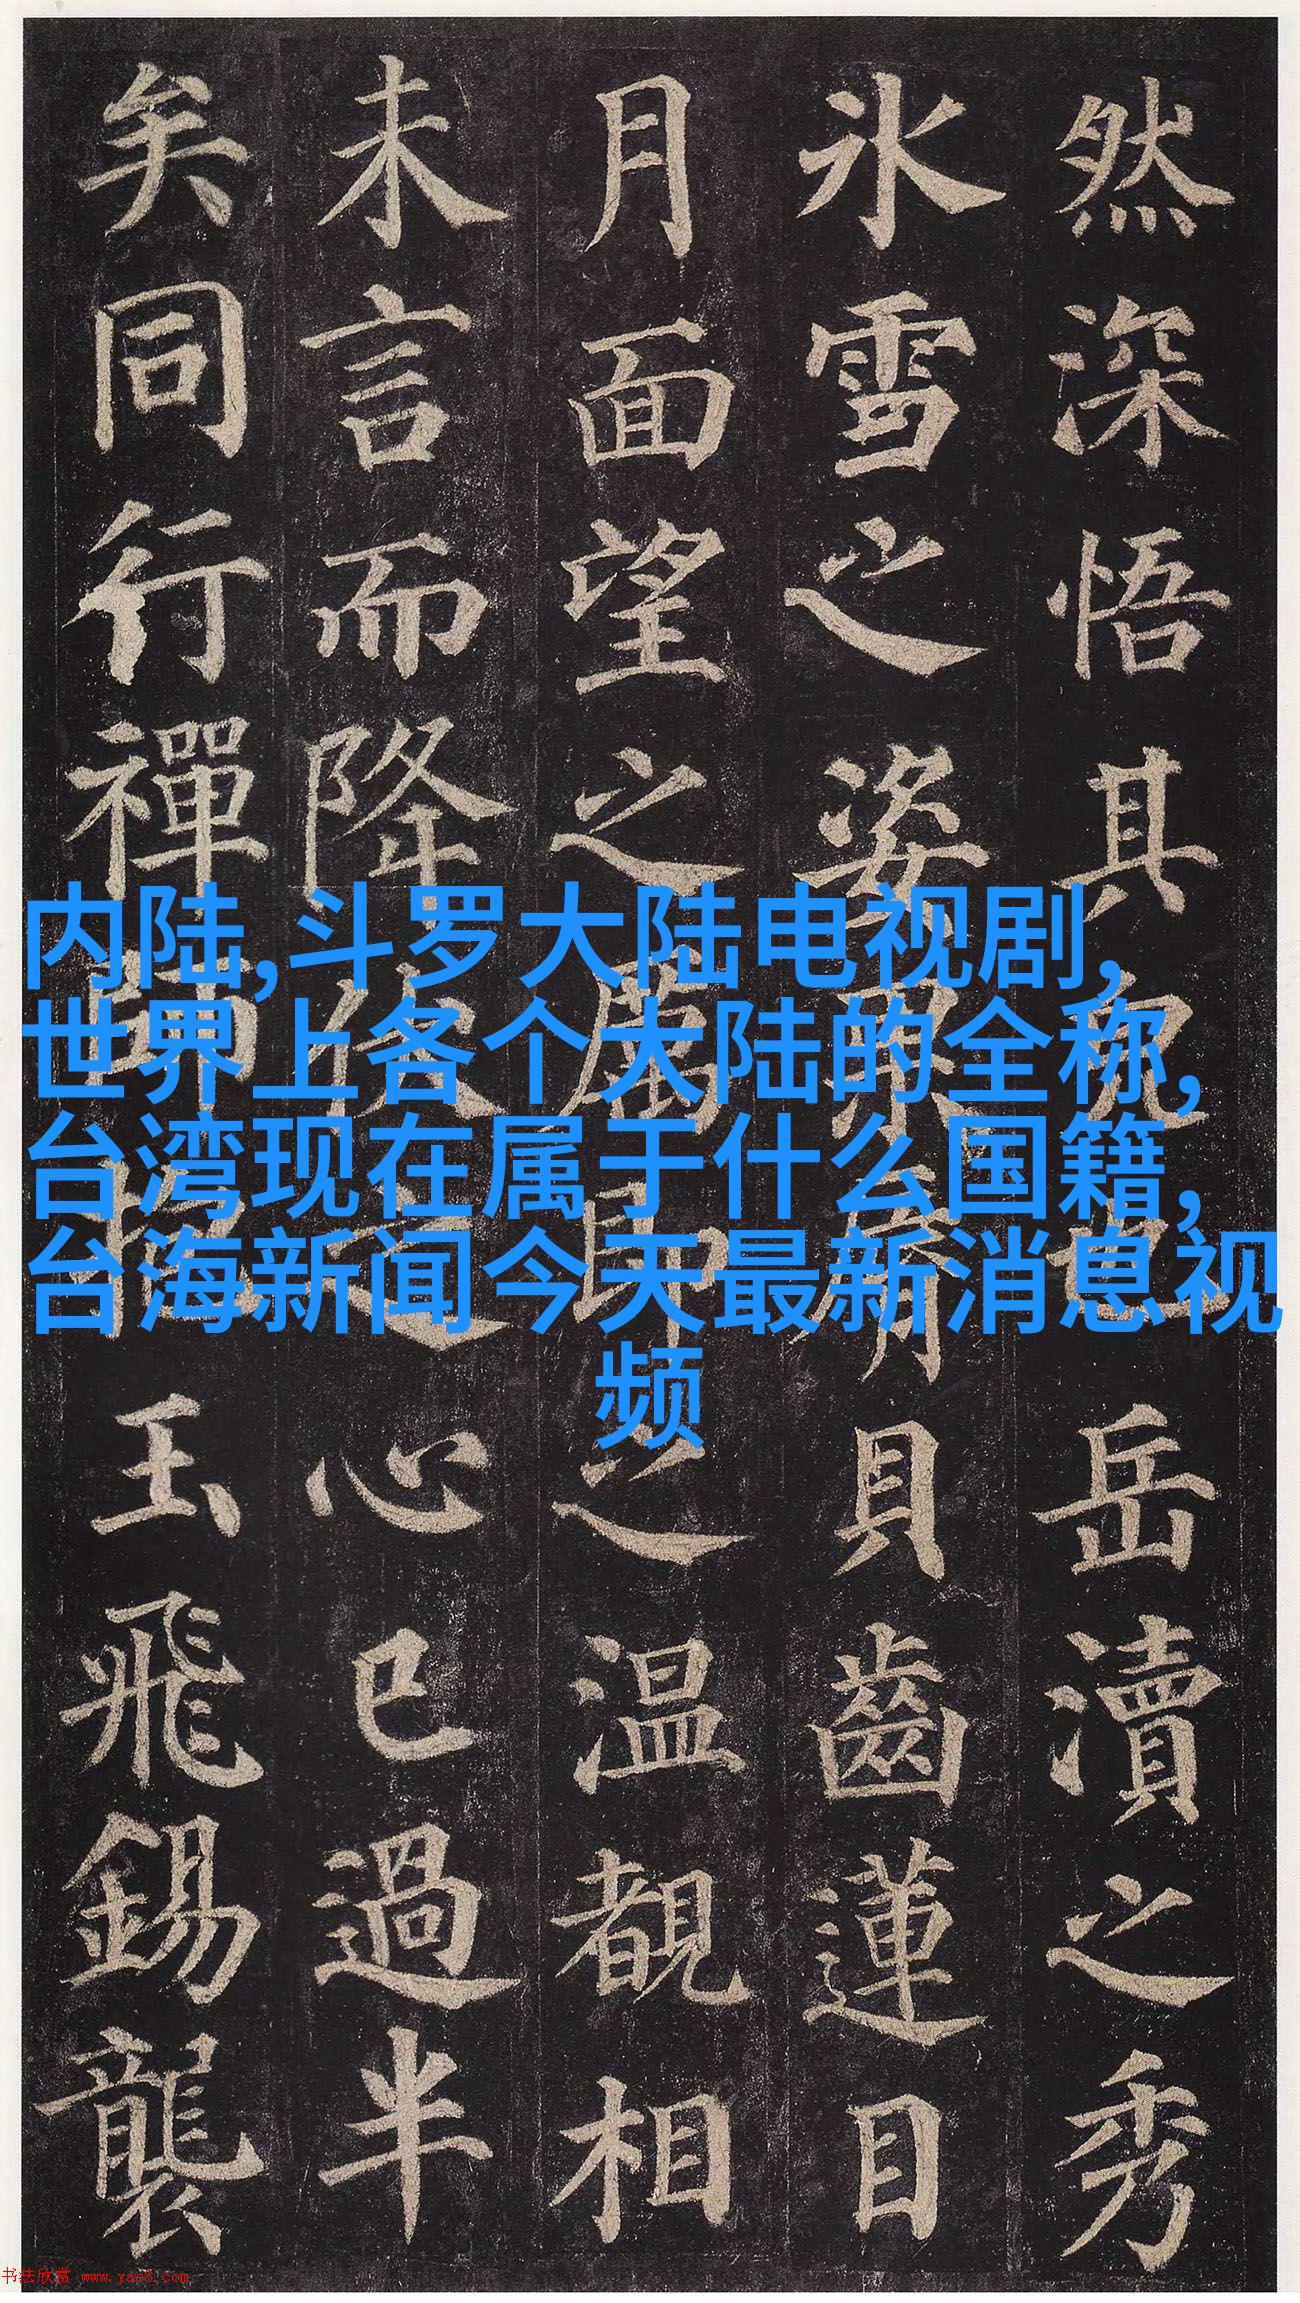 然深悟其皃也岳瀆之秀
氷雪之姿果脣貝齒蓮目
月面望之厲即之温覩相
未言而降伏之心已過半
矣同行禪師抱玉飛錫襲
内陆,斗罗大陆电视剧,
世界上各个大陆的全称,
台湾现在属于什么国籍,
台海新闻今天最新消息视
频
书法欣赏 www.yac8.com